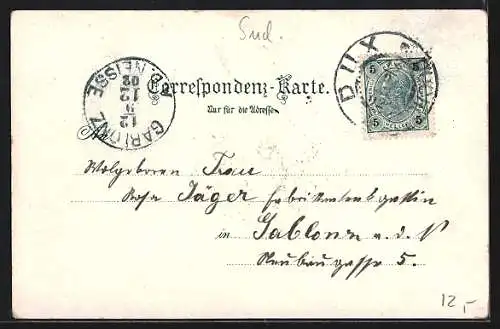 Sud.
DUX
5 5
5 5
GABLONZ A. D. NEISSE
12
12
02
Correspondenz-Karte.
Nur für die Adresse.
Wolgeboren Frau
Rosa Jäger Fabrikantensgattin
in Gablonz a. d. N
Neubaugasse 5.
12,-